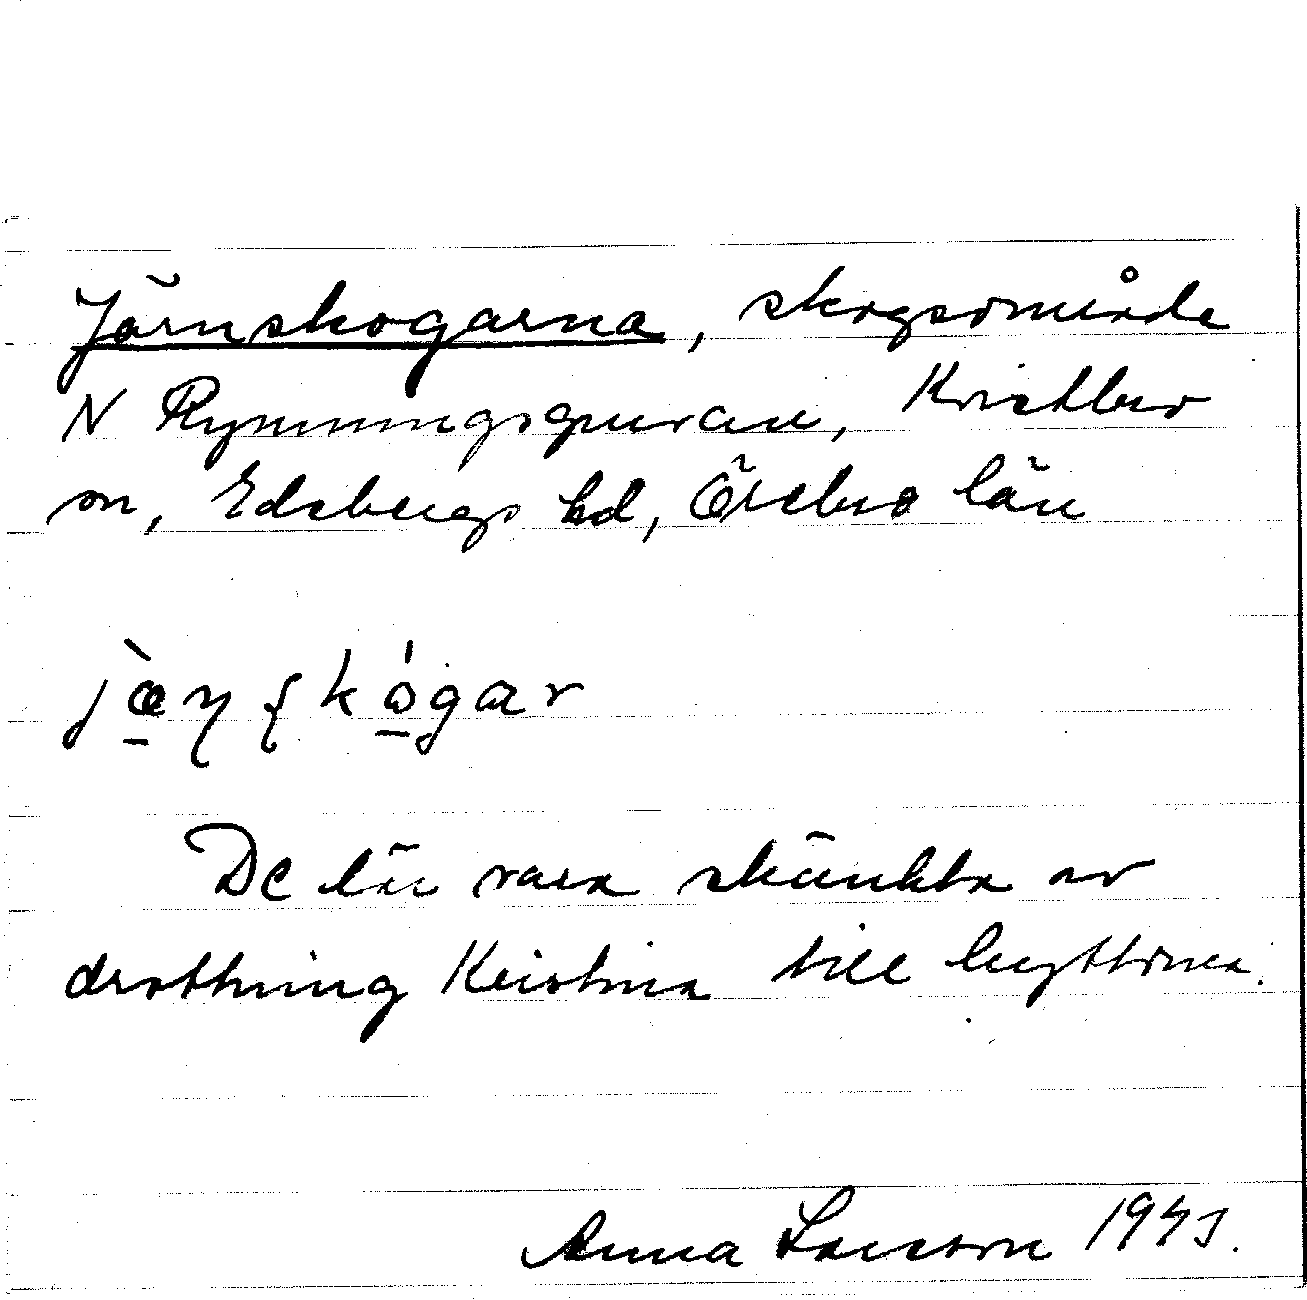 Järnskogarna, skogsområde
N Rymningsgruvan, Kvistbro
sn, Edsbergs hd, Örebro län
jæ̀ɳʂkógar
De lär vara skänkta av
drottning Kristina till hyttorna.
Anna Larsson 1945.